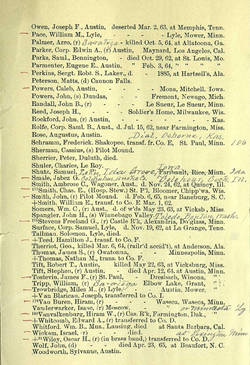 Owen, Joseph F., Austin, deserted Mar. 2, 63, at Memphis, Tenn.
Pace, William M., Lyle, Mower, Minn.
Palmer, Amz. (r) Saratoga killed Oct. 5, 64, at Allatoona, Ga.
Parker, Corp. Edwin A. (r) Austin, Maynard, Los Angeles, Cal.
Parks, Saml., Bennington, died Oct. 29, 62, at St. Louis, Mo.
Parmenter, Eugene E., Austin, — Feb. 3, 64,
Perkins, Sergt. Robt. S., Laker, d. 1885, at Hartsell's, Ala.
Peterson, Matts, (d) Cannon Falls.
Powers, Caleb, Austin, Mona, Mitchell, Iowa.
Powers, John, (s) Dundas, Fremont, Nevago, Mich.
Randall, John B., (r) Le Sueur, Le Sueur, Minn.
Reed, Joseph H., Soldier's Home, Milwaukee, Wis.
Rockford, John, (r) Austin.
Rolfe, Corp. Saml. B., Aust., d. Jul. 15, 62, near Farmington, Miss.
Rose, Augustus, Austin,
Schramm, Frederick, Shakopee, transf. fr. Co. E, St. Paul, Minn.
Sherman, Cassius, (s) Pilot Mound.
Sherrier, Peter, Duluth, died.
Shuler, Charles, Le Roy, Iowa
Smith, Ambrose C., Wagoner, Aust., d. Nov. 24, 62, at Quincy, Ill.
Smith, Chas. E., (r) St. Paul, d. Feb. 6, 65, near Baneburg, S. C.
+Smith, William E., transf. to Co. E Mar. 1, 62.
Somers, Wm. C., (r) Aust., d. of w'ds May 23, 63, at Vicksb., Miss
Surface, Corp. Samuel, Lyle, d. Nov. 19, 62, at La Grange, Tenn.
Tallman, Solomon, Lyle, died.
+Teed, Hamilton J., transf. to Co. F.
Therriot, Geo., killed Mar. 6, 64, (railr'd accid't) at Anderson, Ala.
Thomas, James S., (r) Owatonna, Minneapolis, Minn.
+Thomas, Nathan M., transf. to Co. F.
Tift, Robert T., Austin, killed May 22, 63, at Vicksburg, Miss.
Tift, Stephen, (r) Austin, died Apr. 12, 63, at Austin, Minn.
Tostevin, James F., (r) St. Paul, Dresbach, Winona,
Tripp, William, (r) Elbow Lake, Grant,
Trowbridge, Miles M. (r) Lyle, Austin, died.
+Van Blarican, Joseph, transf. to Co. I.
Van Buren, Hiram, (r) Waseca, Waseca, Minn.
Vanderwarker, Isaac, (r) Moscow,
+Vanvalkenburg, Hiram W., (r) Cas. R'k, Farmington, Dak.,
+Whitcomb, Edward A., transferred to Co. D.
Whitford, Wm. B., Mus., Lansing, died at Santa Barbara, Cal.
Wickam, Israel, (r) died
+Wiley, Oscar H., (r) in brass band, transferred to Co. D.
Wolf, John, (r) St. Paul, died Apr. 23, 65, at Beaufort, N. C.
Woodworth, Sylvanus, Austin.